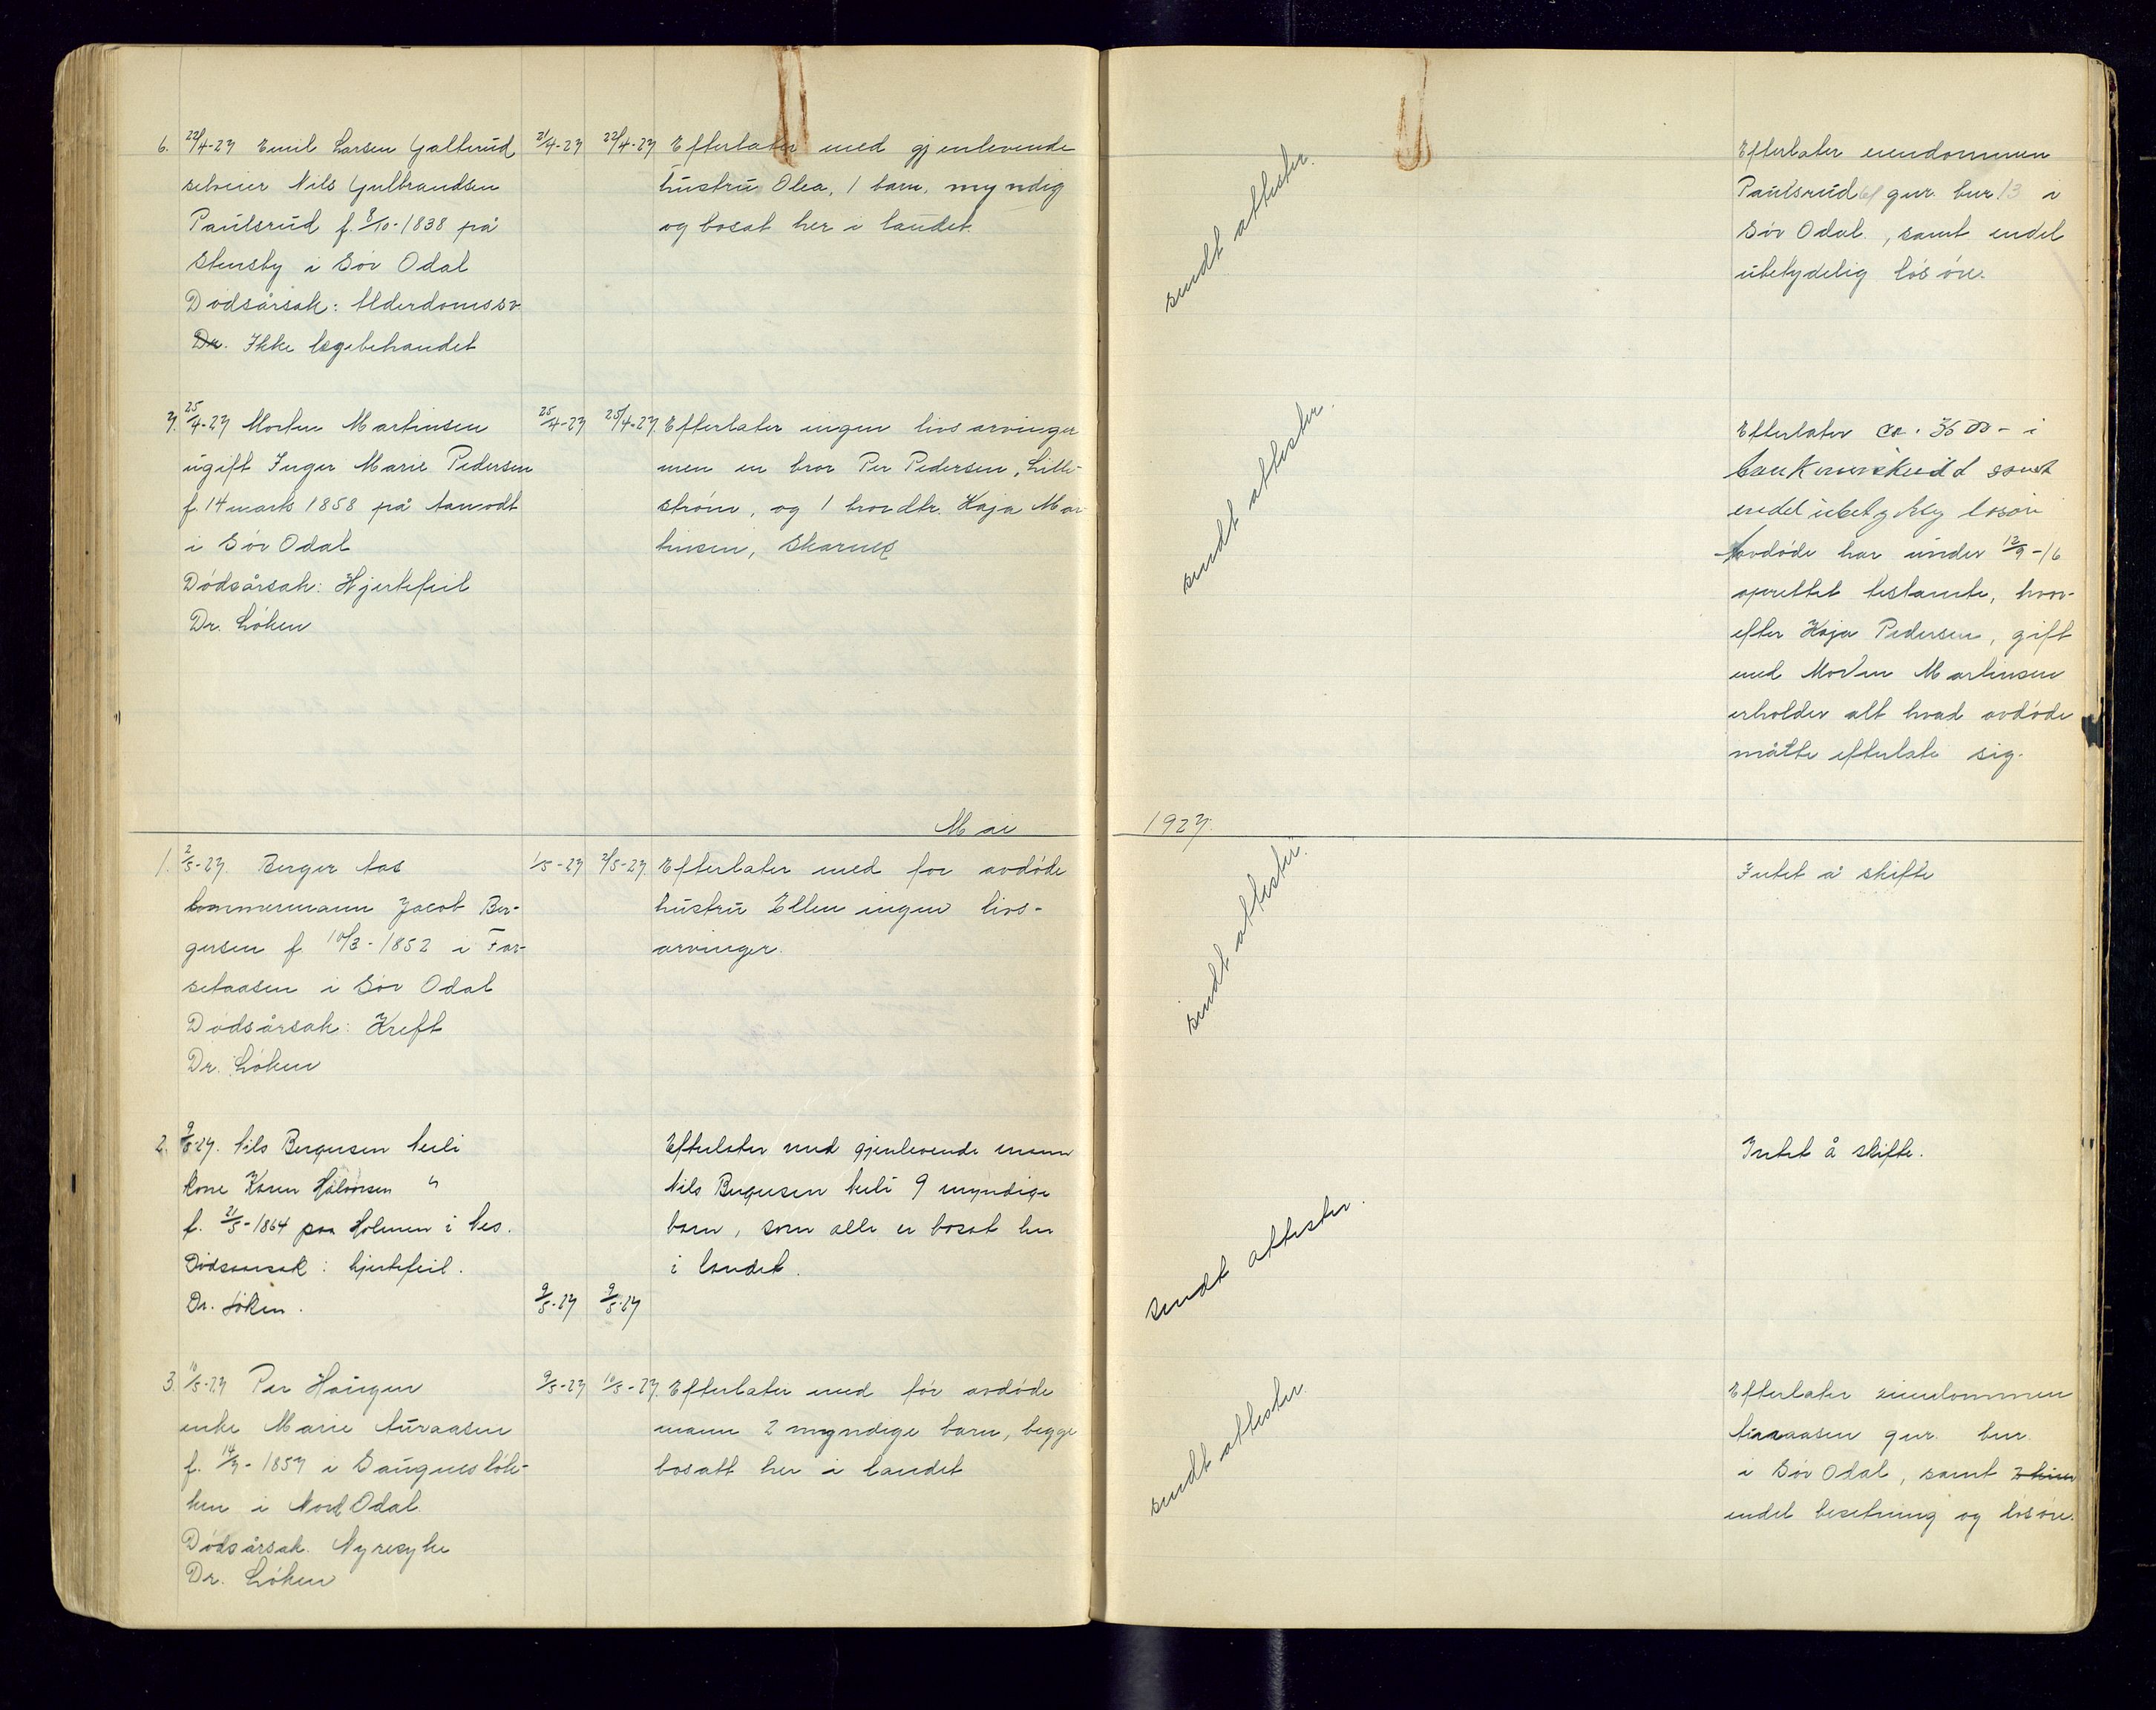 6. 22/4-27 Emil Larsen Galterud
selveier Nils Gulbrandsen
Paulsrud f. 8/10-1838 på
Stensby i Sör Odal
Dödsårsak: Alderdomssv.
Dr. Ikke lægebehandlet
21/4-27 22/4-27 Efterlater med gjenlevende
hustru Olea, 1 barn, myndig
og bosat her i landet.
sendt attester.
Efterlater eiendommen
Paulsrud gnr. bnr 13 i
Sör Odal, samt endel
ubetydelig lösöre.
7. 25/4-27 Morten Martinsen
ugift Inger Marie Pedersen
f. 14 mars 1858 på Aamodt
i Sör Odal
Dödsårsak: Hjertefeil
Dr. Löken
25/4-27 25/4-27. Efterlater ingen livsarvinger
men en bror Per Pedersen, Lille-
ström, og 1 brordtr. Kaja Mar-
tinsen, Skarnes
sendt attester.
Efterlater ca. i
bankinnskudd samt
endel ubetydelig lösöre
Avdöde har under 12/9-16
oprettet testamte, hvor-
efter Kaja Pedersen, gift
med Morten Martinsen
erholder alt hvad avdöde
måtte efterlate sig.
Mai 1927.
1. 2/5-27. Berger Aas
tommermann Jacob Ber-
gersen f. 10/3-1852 i Far-
setaasen i Sör Odal
Dödsårsak: Kreft
Dr. Löken
1/5-27 2/5-27 Efterlater med for avdöde
hustru Ellen ingen livs-
arvinger.
sendt attester.
Intet å skifte
2. 9/5-27. Nils Bergersen Neili
kone Karen Halvorsen "
f. 21/5-1864 paa Holmen i Nes.
Dödsaarsak: hjertefeil.
Dr. Löken.
9/5-27 9/5-27
Efterlater med gjenlevende mann
Nils Bergersen Neili 9 myndige
barn, som alle er bosat her
i landet.
sendt attester.
Intet å skifte.
3. 10/5-27 Per Haugen
enke Marie Auraasen
f. 14/7-1857 i Saugneslök-
ken i Nord Odal.
Dödsårsak. Nyresyke
Dr. Löken
9/5-27 10/5-27. Efterlater med för avdöde
mann 2 myndige barn, begge
bosatt her i landet
sendt attester.
Efterlater eiendommen
Auraasen gnr. bnr.
i Sör Odal, samt
endel besetning og lösöre.